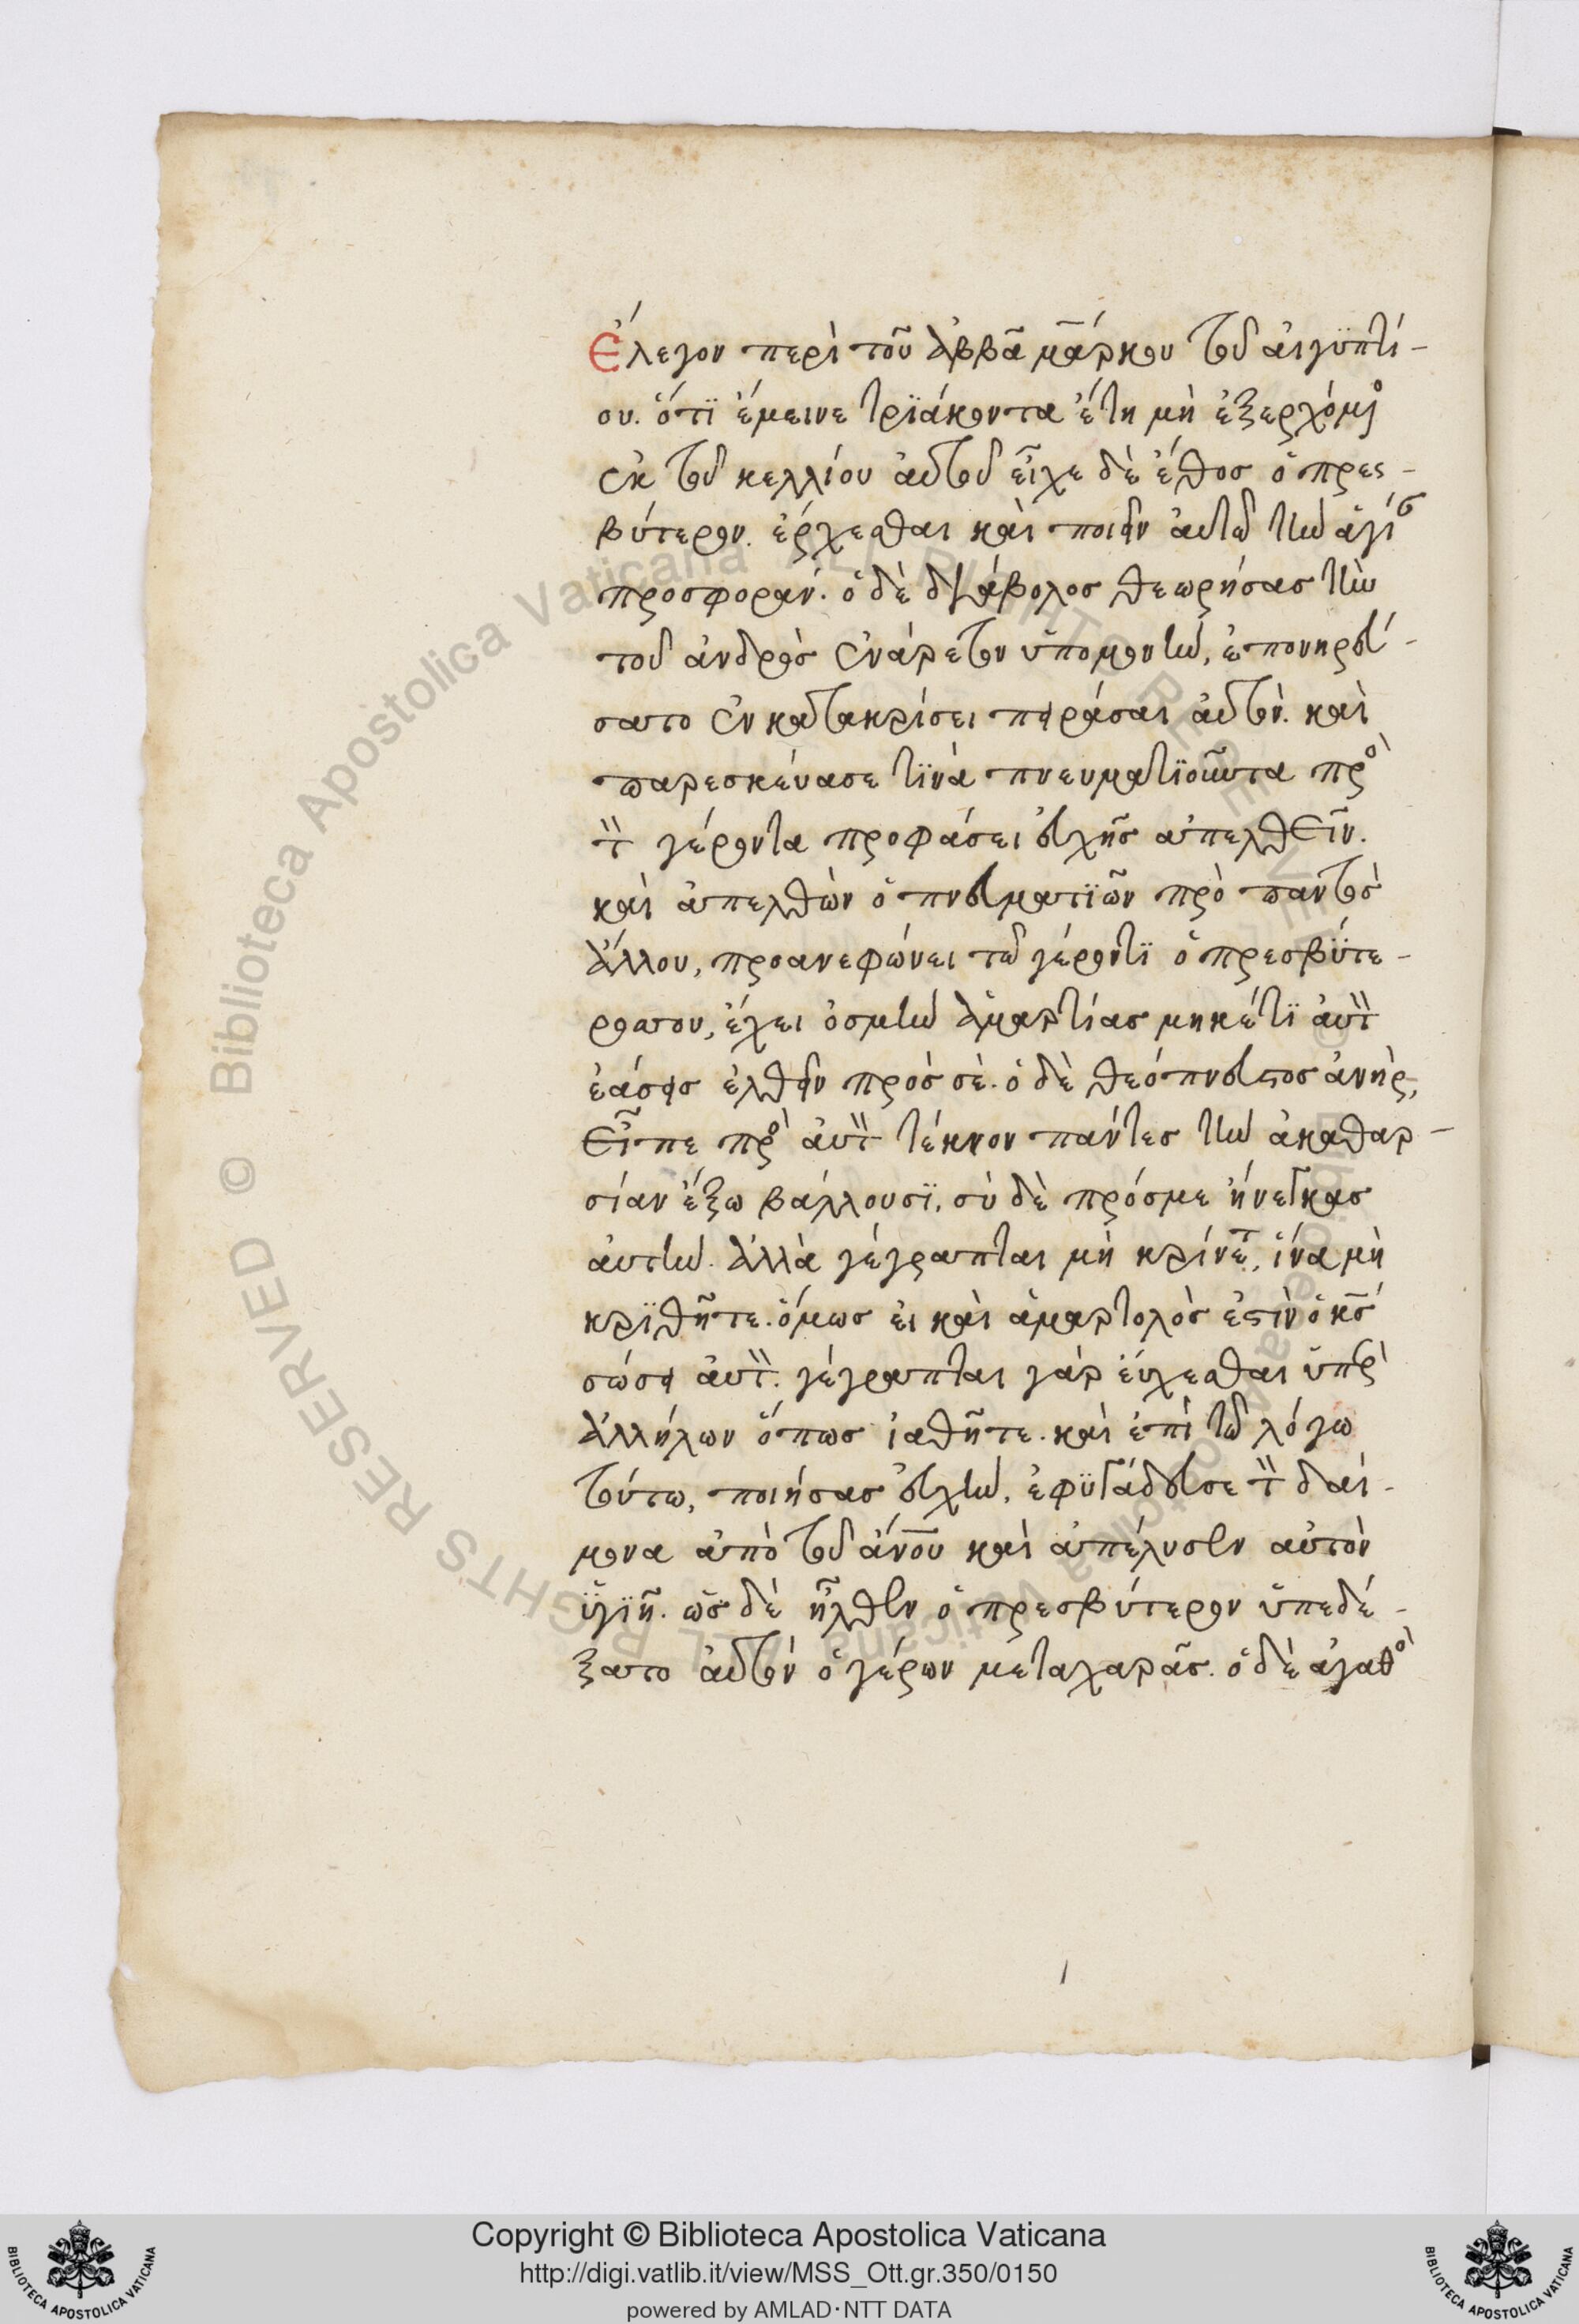 Ἔλεγον περὶ τοῦ ἀββᾶ μάρκου τοῦ αἰγϋπτί-
ου. ὅτϊ ἔμεινε τρϊάκοντα ἔτη μὴ ἐξερχόμο
ἐκ τοῦ κελλίου αὐτοῦ εἶχε δὲ ἔθος ὁ πρεσ-
βύτερον. ἔρχεσθαι καὶ ποιεῖν αὐτῶ τὴν ἁγίσ
προσφοράν. ὁ δὲ διάβολος θεωρήσας τὴν
τοῦ ἀνδρὸς ἐνάρετον ὑπομονὴν, ἐπονηρεύ-
σατο ἐν κατακρίσει πειράσαι αὐτόν. καὶ
παρεσκεύασε τϊνὰ πνευματϊοῦντα πρὸ
τ γέροντα προφάσει εὐχῆς ἀπελθεῖν.
καὶ ἀπελθὼν ὁ πνευματϊῶν πρὸ παντὸς
ἄλλου, προανεφώνει τῶ γέροντϊ ὁ πρεσβϋτε-
ροσου, ἔχει ὀσμὴν ἁμαρτίας μηκέτϊ αὐτ
ἐάσεις ἐλθεῖν πρὸς σὲ. ὁ δὲ θεόπνευστος ἀνὴρ,
εἶπε πρὸ αὐτ τέκνον πάντες τὴν ἀκαθαρ-
σίαν ἔξω βάλλουσϊ, σὺ δὲ πρόσμε ἤνεγκας
αὐτὴν. ἀλλὰ γέγραπται μὴ κρίνετ, ἵνα μὴ
κρϊθῆτε. ὅμως εἰ καὶ ἁμαρτολὸς ἐστὶν ὁ κς
σώσει αὐτ. γέγραπται γάρ εὔχεσθαι ὑπρ
ἀλλήλων ὅπως ἰαθῆτε. καὶ ἐπὶ τῶ λόγω
τούτω, ποιήσας εὐχὴν, ἐφϋγάδευσε τ δαί-
μονα ἀπὸ τοῦ ἀνου καὶ ἀπέλυσεν αὐτὸν
ὑγϊῆ. ὡς δὲ ἦλθεν ὁ πρεσβύτερον ὑπεδέ-
ξατο αὐτὸν ὁ γέρων μεταχαρᾶς. ὁ δὲ ἀγαθὸ
Copyright © Biblioteca Apostolica Vaticana
http://digi.vatlib.it/view/MSS_Ott.gr.350/0150
powered by AMLAD·NTT DATA